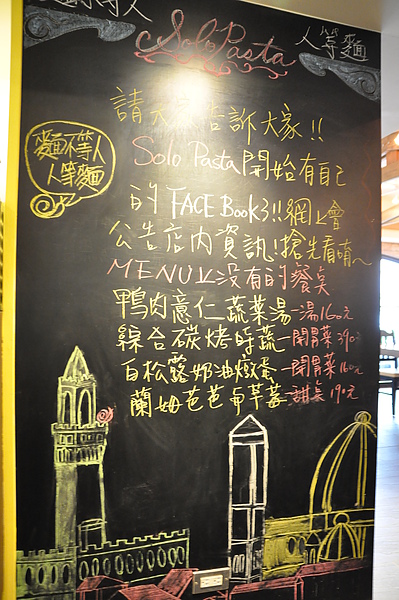 Solo Pasta
人等麵
請大家告訴大家!!
麵不等人
人等麵
Solo Pasta開始有自己
的FACE Book了!!網上會
公告店內資訊!搶先看唷~
MENU上沒有的餐點
鴨肉薏仁蔬菜湯-湯160元
綜合碳烤時蔬-開胃菜390
白松露奶油燉蛋-開胃菜160元
蘭姆芭芭果草莓-甜點190元